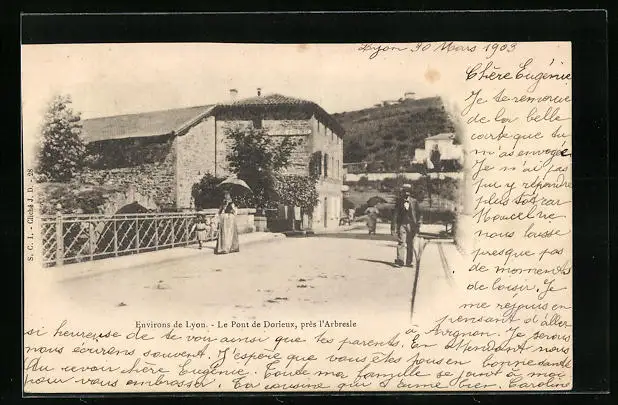 Lyon 30 Mars 1903
Chère Eugénie
Je te remercie
de la belle
carte que tu
m'as envoyée
Je n'ai pas
pu y répondre
plus tôt car
nous laisse
presque pas
de moments
de loisir. Je
me réjouis en
pensant d'aller
à Avignon. Je serais
si heureuse de te voir ainsi que tes parents. En attendant nous
nous écrirons souvent. J'espère que vous êtes tous en bonne santé
Au revoir chère Eugénie. Toute ma famille se joint à moi
pour vous embrasser. Ta cousine qui t'aime bien. Caroline
Environs de Lyon. - Le Pont de Dorieux, près l'Arbresle
S. C. I. - Cliché J. D. - 28